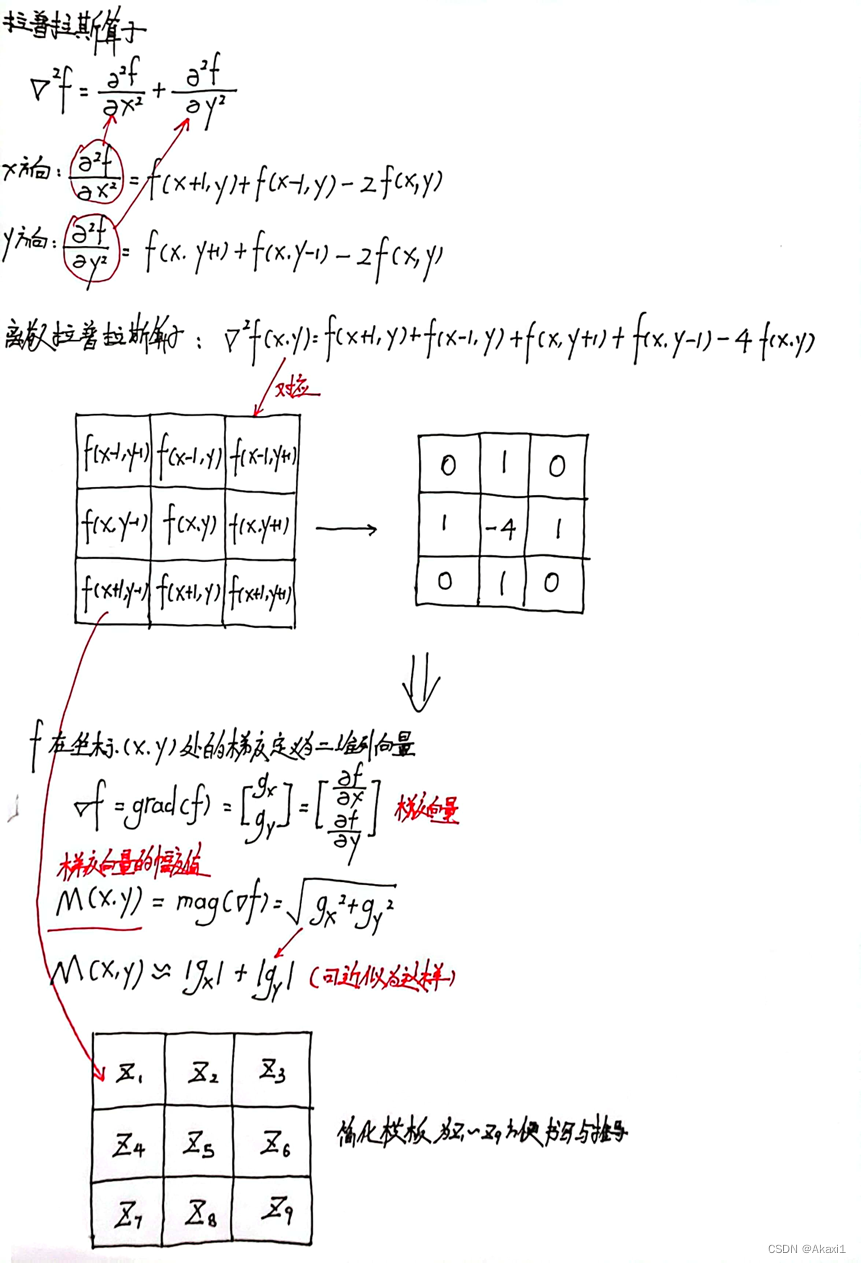 拉普拉斯算子
∇²f = ∂²f/∂x² + ∂²f/∂y²
x方向: ∂²f/∂x² = f(x+1,y)+f(x-1,y)-2f(x,y)
y方向: ∂²f/∂y² = f(x.y+1)+f(x.y-1)-2f(x,y)
离散拉普拉斯算子: ∇²f(x.y)=f(x+1,y)+f(x-1,y)+f(x,y+1)+f(x.y-1)-4f(x.y)
对应
f(x-1,y-1) f(x-1,y) f(x-1,y+1)
f(x,y-1) f(x.y) f(x.y+1)
f(x+1,y-1) f(x+1,y) f(x+1,y+1)
0 1 0
1 -4 1
0 1 0
f在坐标(x.y)处的梯度定义为二维列向量
∇f = grad(f) = [gx gy] = [∂f/∂x ∂f/∂y] 梯度向量
梯度向量的幅度值
M(x.y) = mag(∇f) = √gx²+gy²
M(x,y) ≈ |gx| + |gy| (可近似为这样)
Z₁ Z₂ Z₃
Z₄ Z₅ Z₆
Z₇ Z₈ Z₉
简化模板为Z₁~Z₉方便书写与推导
CSDN @Akaxi1